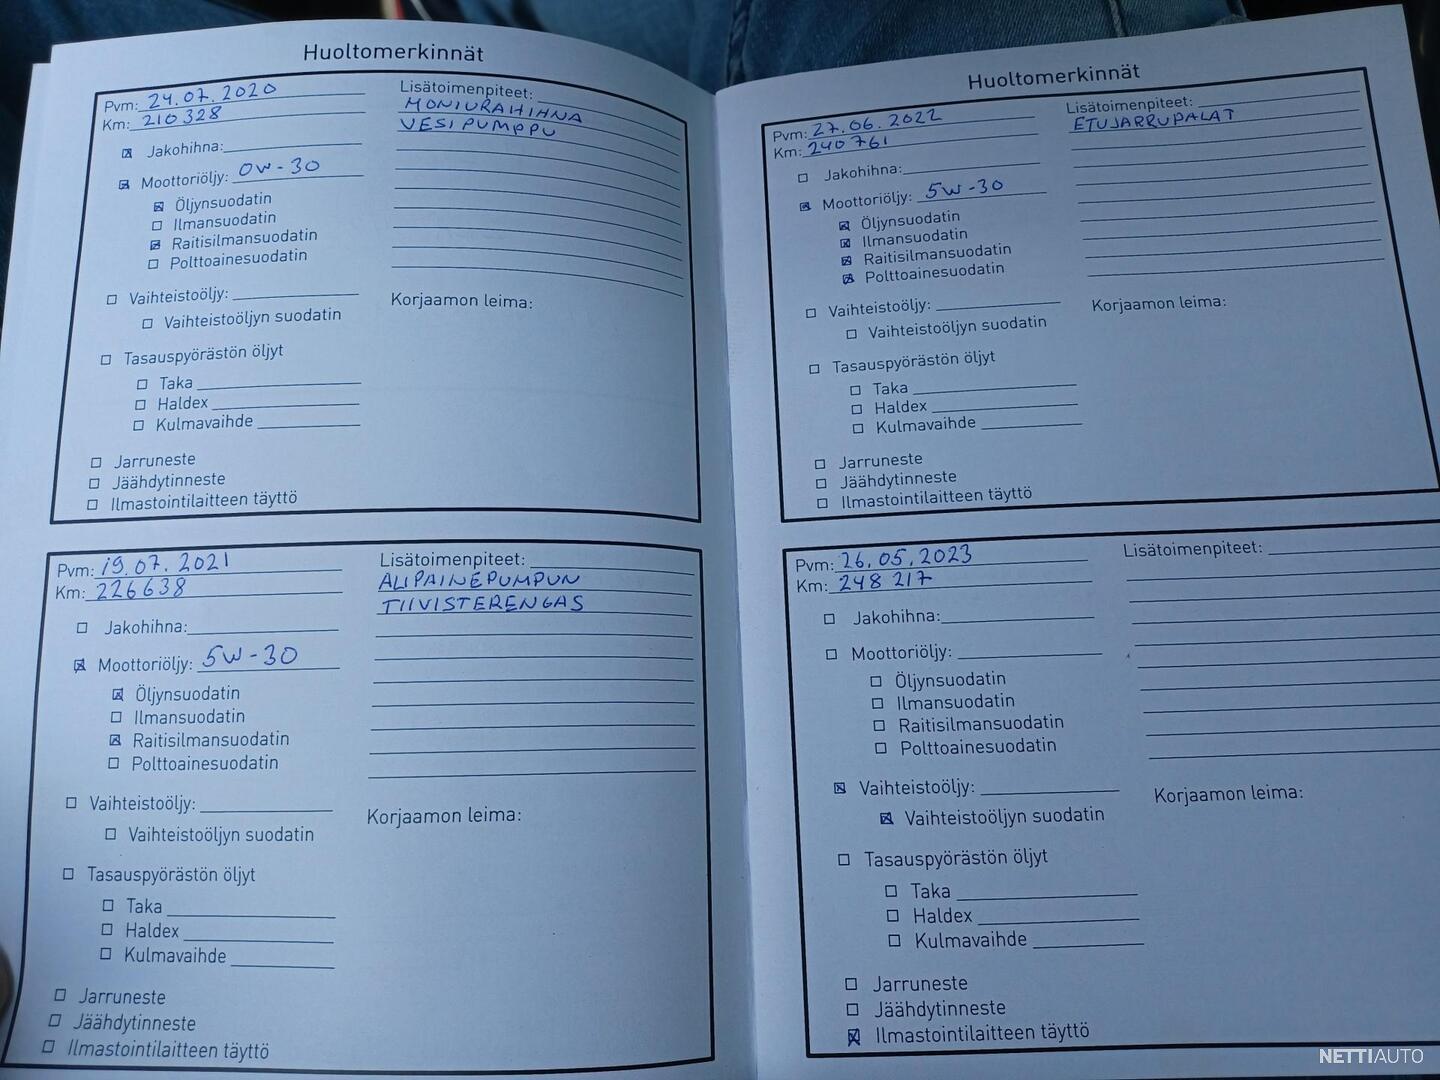 Huoltomerkinnät
Pvm: 24.07.2020
Km: 210 328
Jakohihna:
Moottoriöljy: 0W-30
Öljynsuodatin
Ilmansuodatin
Raitisilmansuodatin
Polttoainesuodatin
Vaihteistoöljy:
Vaihteistoöljyn suodatin
Tasauspyörästön öljyt
Taka
Haldex
Kulmavaihde
Jarruneste
Jäähdytinneste
Ilmastointilaitteen täyttö
Lisätoimenpiteet:
MONIURAHIHNA
VESIPUMPPU
Korjaamon leima:
Pvm: 19.07.2021
Km: 226638
Jakohihna:
Moottoriöljy: 5W-30
Öljynsuodatin
Ilmansuodatin
Raitisilmansuodatin
Polttoainesuodatin
Vaihteistoöljy:
Vaihteistoöljyn suodatin
Tasauspyörästön öljyt
Taka
Haldex
Kulmavaihde
Jarruneste
Jäähdytinneste
Ilmastointilaitteen täyttö
Lisätoimenpiteet:
ALIPAINEPUMPUN
TIIVISTERENGAS
Korjaamon leima:
Huoltomerkinnät
Pvm: 27.06.2022
Km: 240 761
Jakohihna:
Moottoriöljy: 5W-30
Öljynsuodatin
Ilmansuodatin
Raitisilmansuodatin
Polttoainesuodatin
Vaihteistoöljy:
Vaihteistoöljyn suodatin
Tasauspyörästön öljyt
Taka
Haldex
Kulmavaihde
Jarruneste
Jäähdytinneste
Ilmastointilaitteen täyttö
Lisätoimenpiteet:
ETUJARRUPALAT
Korjaamon leima:
Pvm: 26.05.2023
Km: 248 217
Jakohihna:
Moottoriöljy:
Öljynsuodatin
Ilmansuodatin
Raitisilmansuodatin
Polttoainesuodatin
Vaihteistoöljy:
Vaihteistoöljyn suodatin
Tasauspyörästön öljyt
Taka
Haldex
Kulmavaihde
Jarruneste
Jäähdytinneste
Ilmastointilaitteen täyttö
Lisätoimenpiteet:
Korjaamon leima:
NETTIAUTO